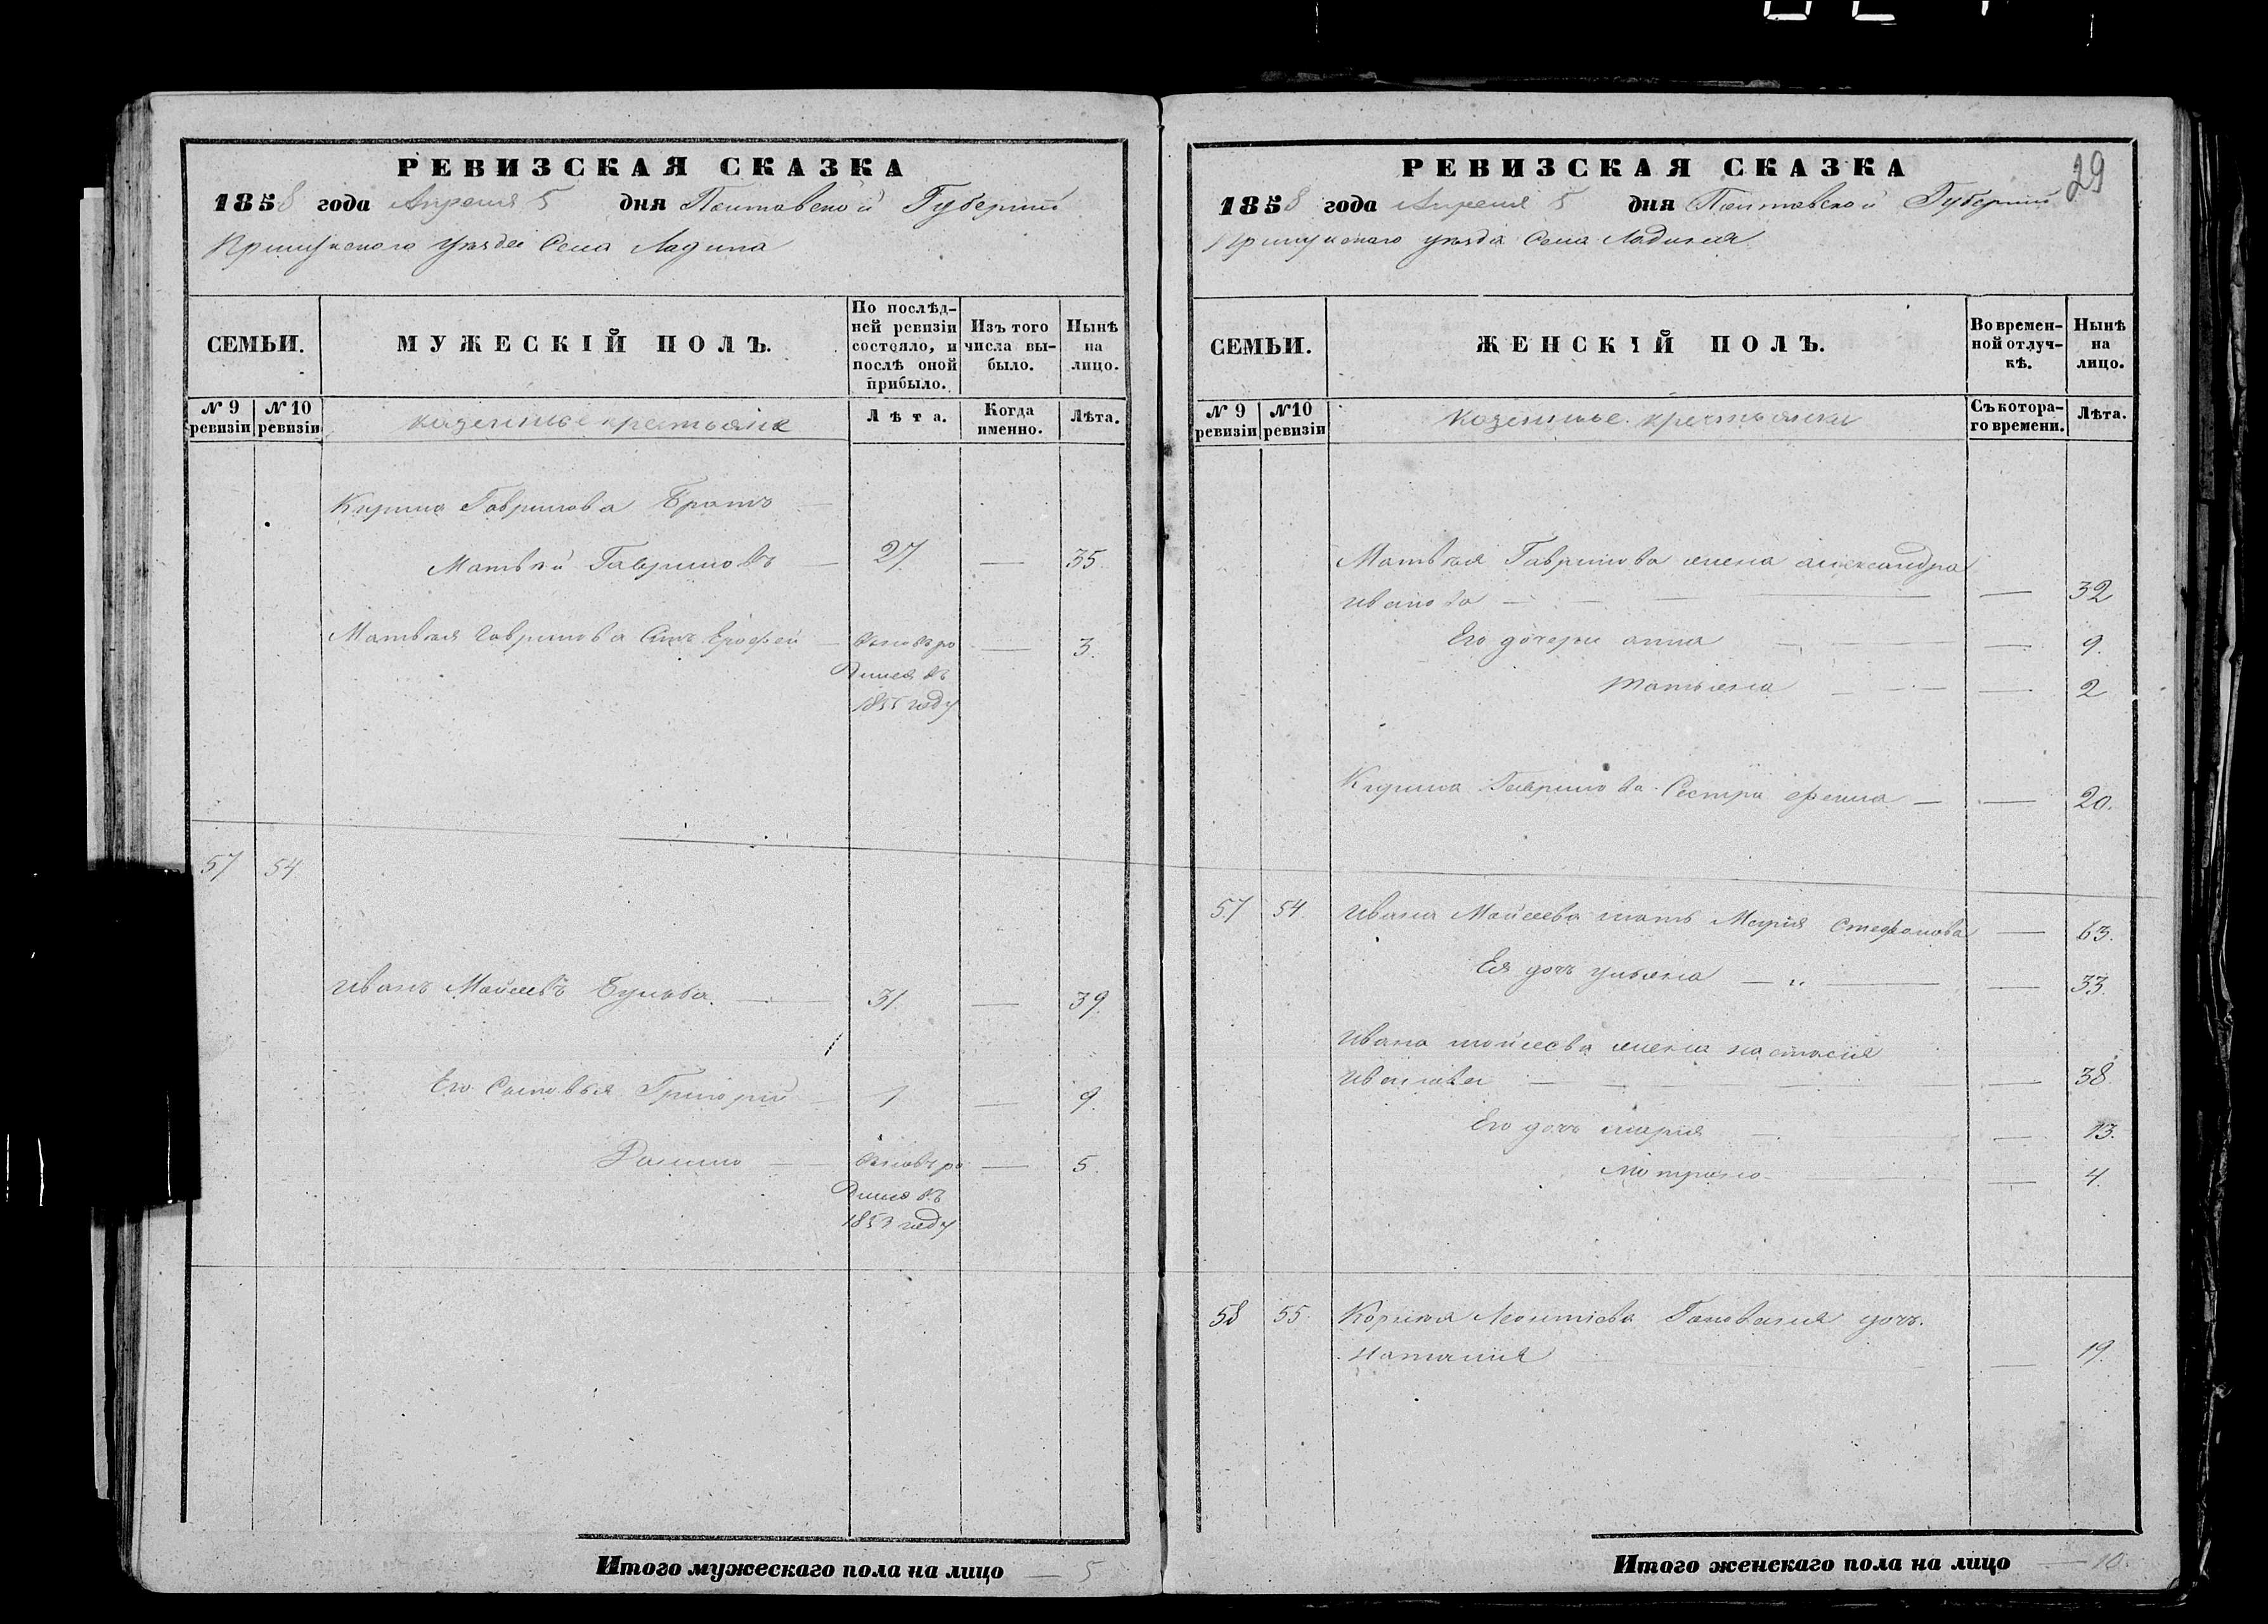 РЕВИЗСКАЯ СКАЗКА
1858 года Апреля 5 дня Полтавской Губернии
Прилуцкого уезда Села Ладина
СЕМЬИ.
МУЖЕСКІЙ ПОЛЪ.
По послѣд-
ней ревизіи
состояло, и
послѣ оной
прибыло.
Изъ того
числа вы-
было.
Нынѣ
на
лицо.
№ 9
ревизіи
№ 10
ревизіи
казенные крестьяне
Лѣта.
Когда
именно.
Лѣта.
Кирила Гаврилова Братъ —
Матвѣй Гавриловъ — 27 — 35
Матвѣя Гаврилова Сынъ Ерофей — вновь ро — 3.
дился въ
1855 году
57 54
Иванъ Мойсеевъ Бульба. — 31 — 39
Его Сыновья Григорій — 1 — 9.
Данило — вновь ро — 5.
дился въ
1853 году
Итого мужескаго пола на лицо — 5
29
РЕВИЗСКАЯ СКАЗКА
1858 года Апреля 5 дня Полтавской Губернии
Прилуцкого уезда Села Ладина
СЕМЬИ.
ЖЕНСКІЙ ПОЛЪ.
Во времен-
ной отлуч-
кѣ.
Нынѣ
на
лицо.
№ 9
ревизіи
№10
ревизіи
казенные крестьянки
Съ котора-
го времени.
Лѣта.
Матвѣя Гаврилова жена александра
иванова — — 32
Его дочери анна — — 9.
татьяна — — 2
Кирила Гаврилова Сестра — — 20.
57 54. ивана Мойсеева мать Марія Стефанова — 63.
Ея дочь ульяна — — 33.
ивана мойсеева жена настасия
иванова — — 38
Его дочь марія — — 13.
мотрона — — 4.
58 55. Корнея Леонтіева дочь.
наталия — 19.
Итого женскаго пола на лицо — 10.